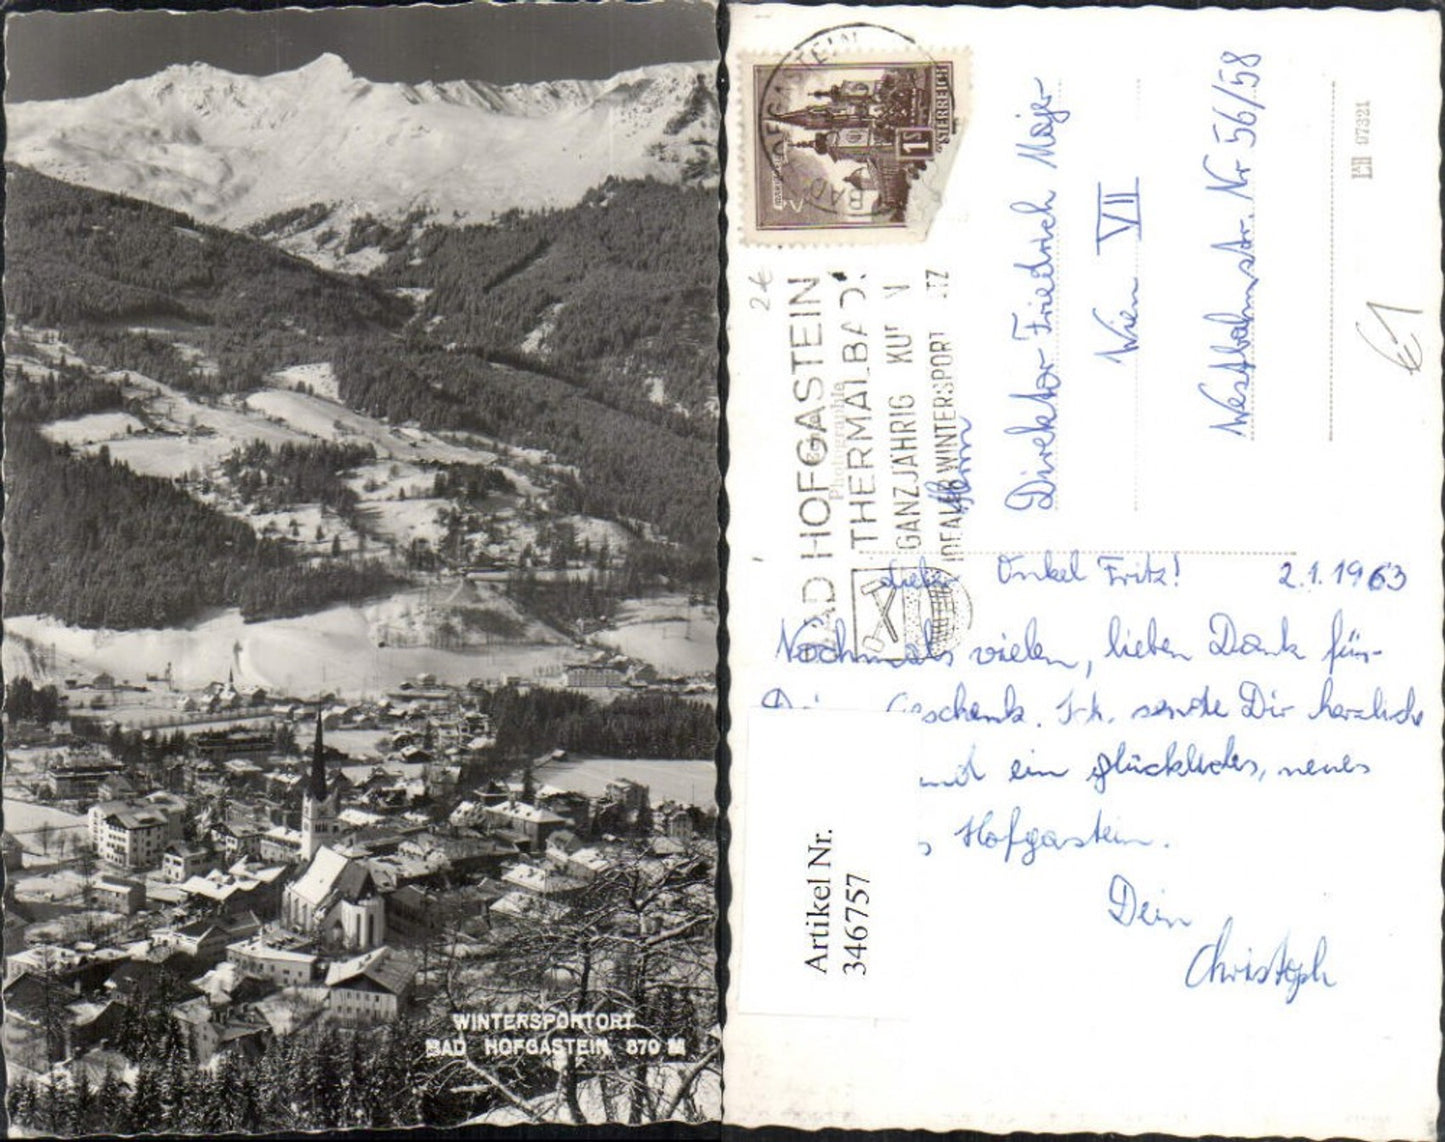 WINTERSPORTORT
BAD HOFGASTEIN 870 M
ÖSTERREICH
1 S
BAD HOFGASTEIN
BAD HOFGASTEIN
THERMALBAD
GANZJÄHRIG
IDEALER WINTERSPORT
Echte
Photographie
2€
Herrn
Direktor Friedrich Majer
Wien VII
Westbahnstr. Nr 56/58
07321
€1
Lieber Onkel Fritz! 2.1.1963
Nochmals vielen, lieben Dank für
Geschenk. Ich sende Dir herzliche
ein glückliches, neues
Hofgastein.
Dein
Christoph
Artikel Nr.
346757